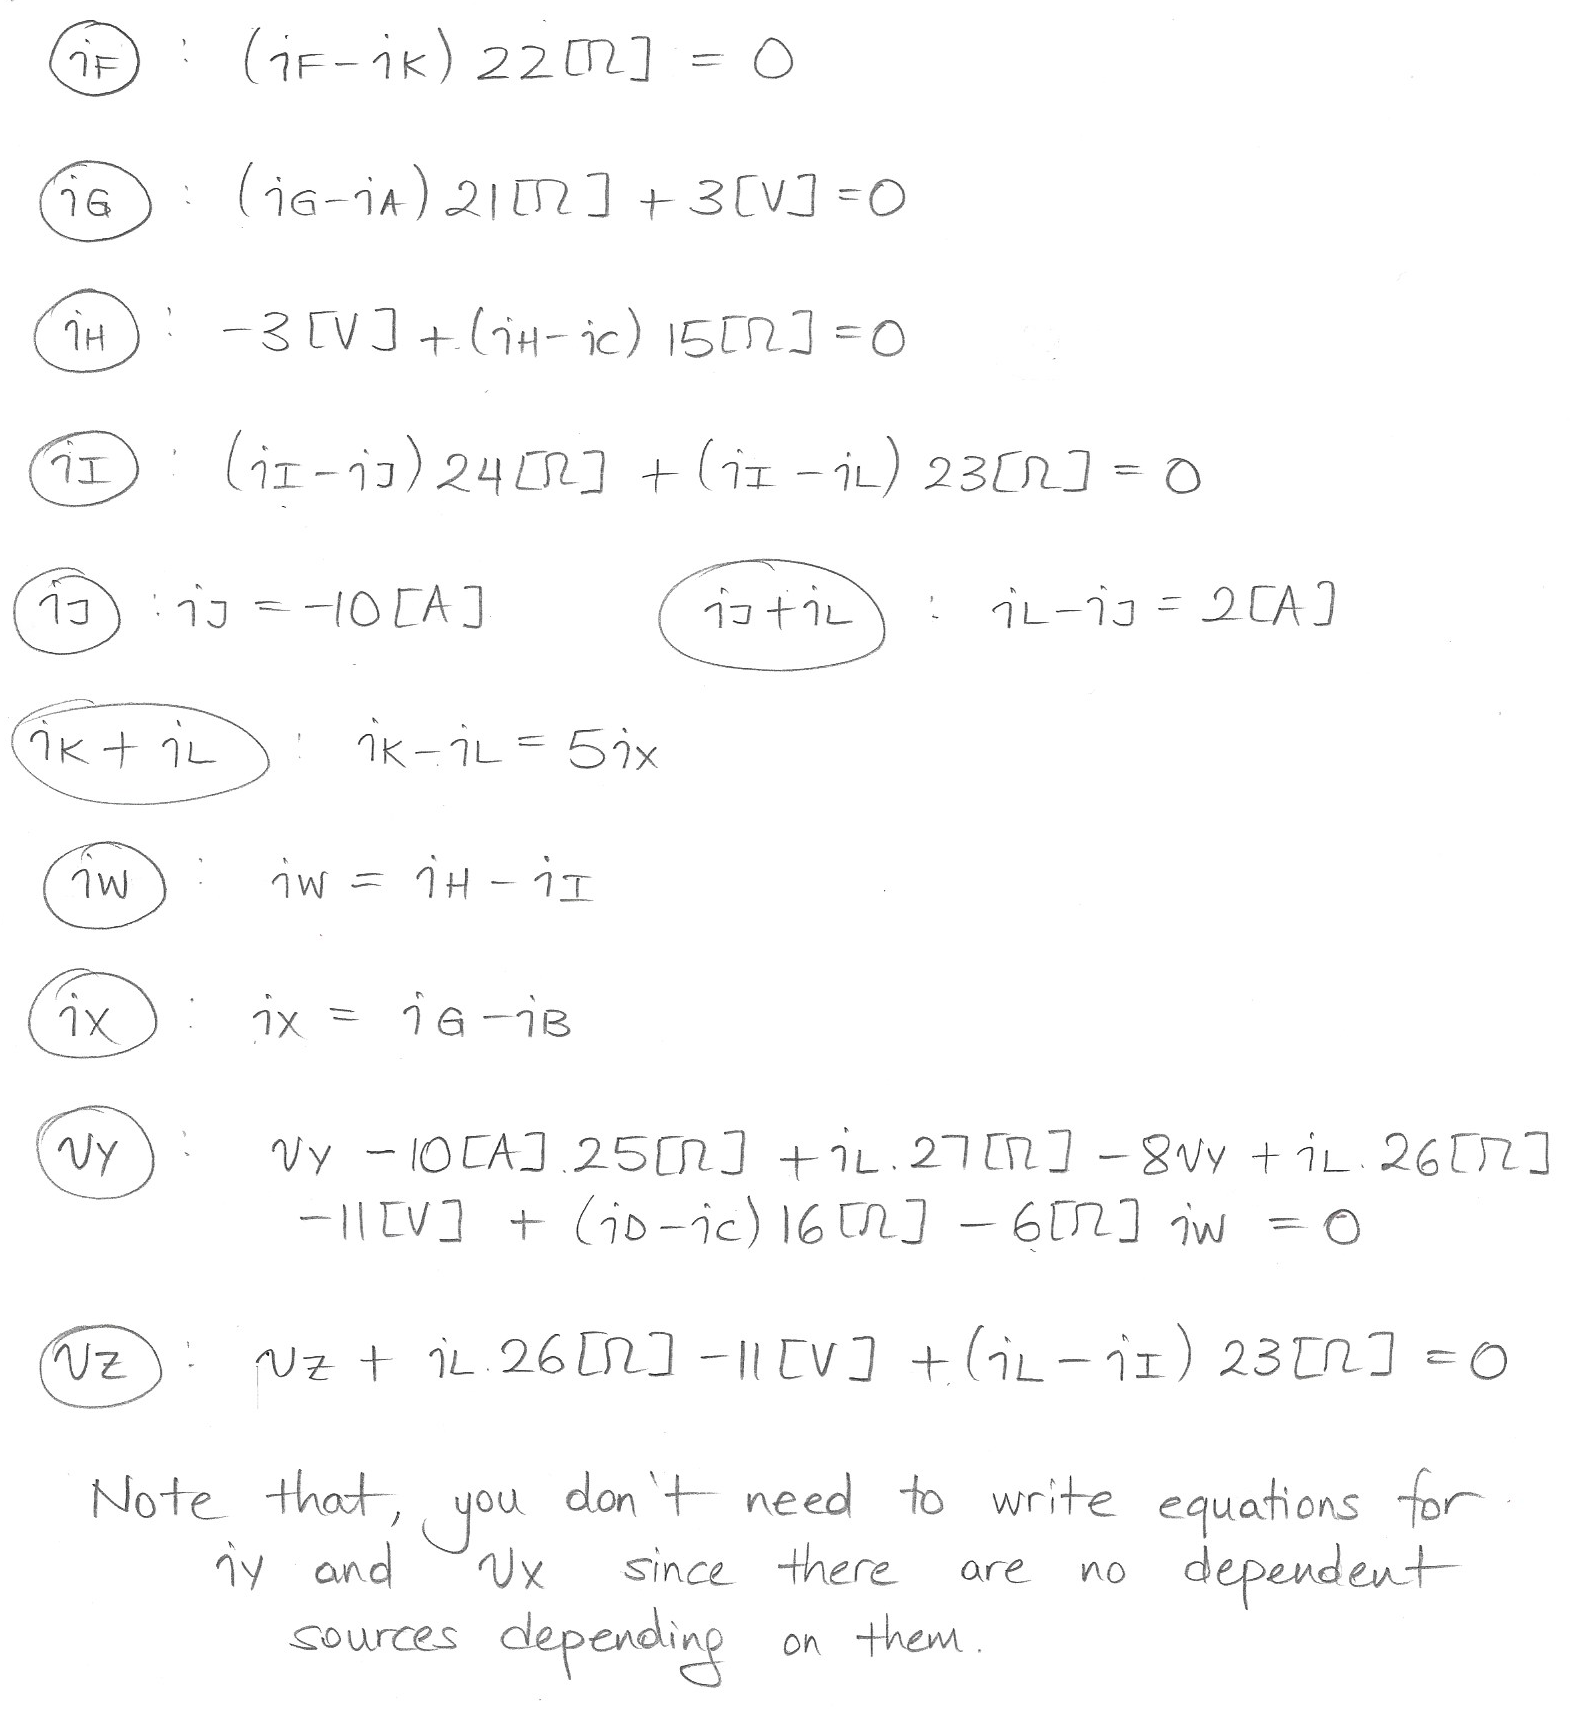 iF : (iF-iK) 22[Ω] = 0
iG : (iG-iA) 21[Ω] + 3[V] = 0
iH : -3[V] + (iH-iC) 15[Ω] = 0
iI : (iI-iJ) 24[Ω] + (iI-iL) 23[Ω] = 0
iJ : iJ = -10[A] iJ+iL : iL-iJ = 2[A]
iK+iL : iK-iL = 5iX
iW : iW = iH - iI
iX : iX = iG - iB
vY : vY - 10[A].25[Ω] + iL.27[Ω] - 8vY + iL.26[Ω]
-11[V] + (iD-iC) 16[Ω] - 6[Ω] iW = 0
vZ : vZ + iL.26[Ω] - 11[V] + (iL-iI) 23[Ω] = 0
Note that, you don't need to write equations for
iY and vX since there are no dependent
sources depending on them.